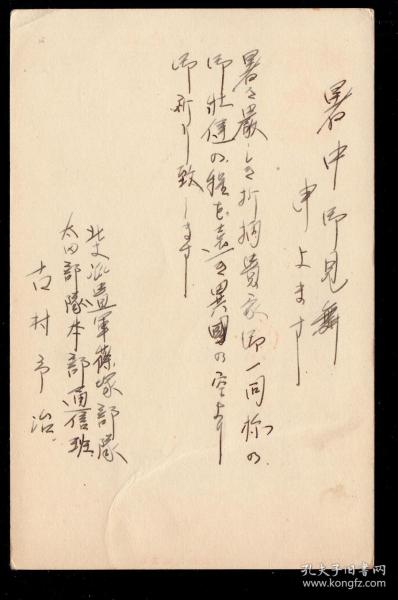 暑中御見舞
申上ます
暑さ厳しき折柄貴家御一同様の
御壮健の程を遠き異國の空より
御祈り致します
北支派遣軍篠塚部隊
太田部隊本部通信班
吉村予治
孔夫子旧书网
www.kongfz.com